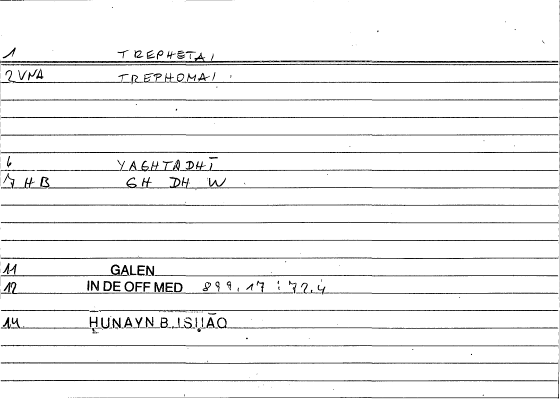 1 TREPHETAI
2 VMA TREPHOMAI
6 YAGHTADHĪ
7 HB GH DH W
11 GALEN
12 IN DE OFF MED 899,17 : 72,4
14 ḤUNAYN B. ISḤĀQ